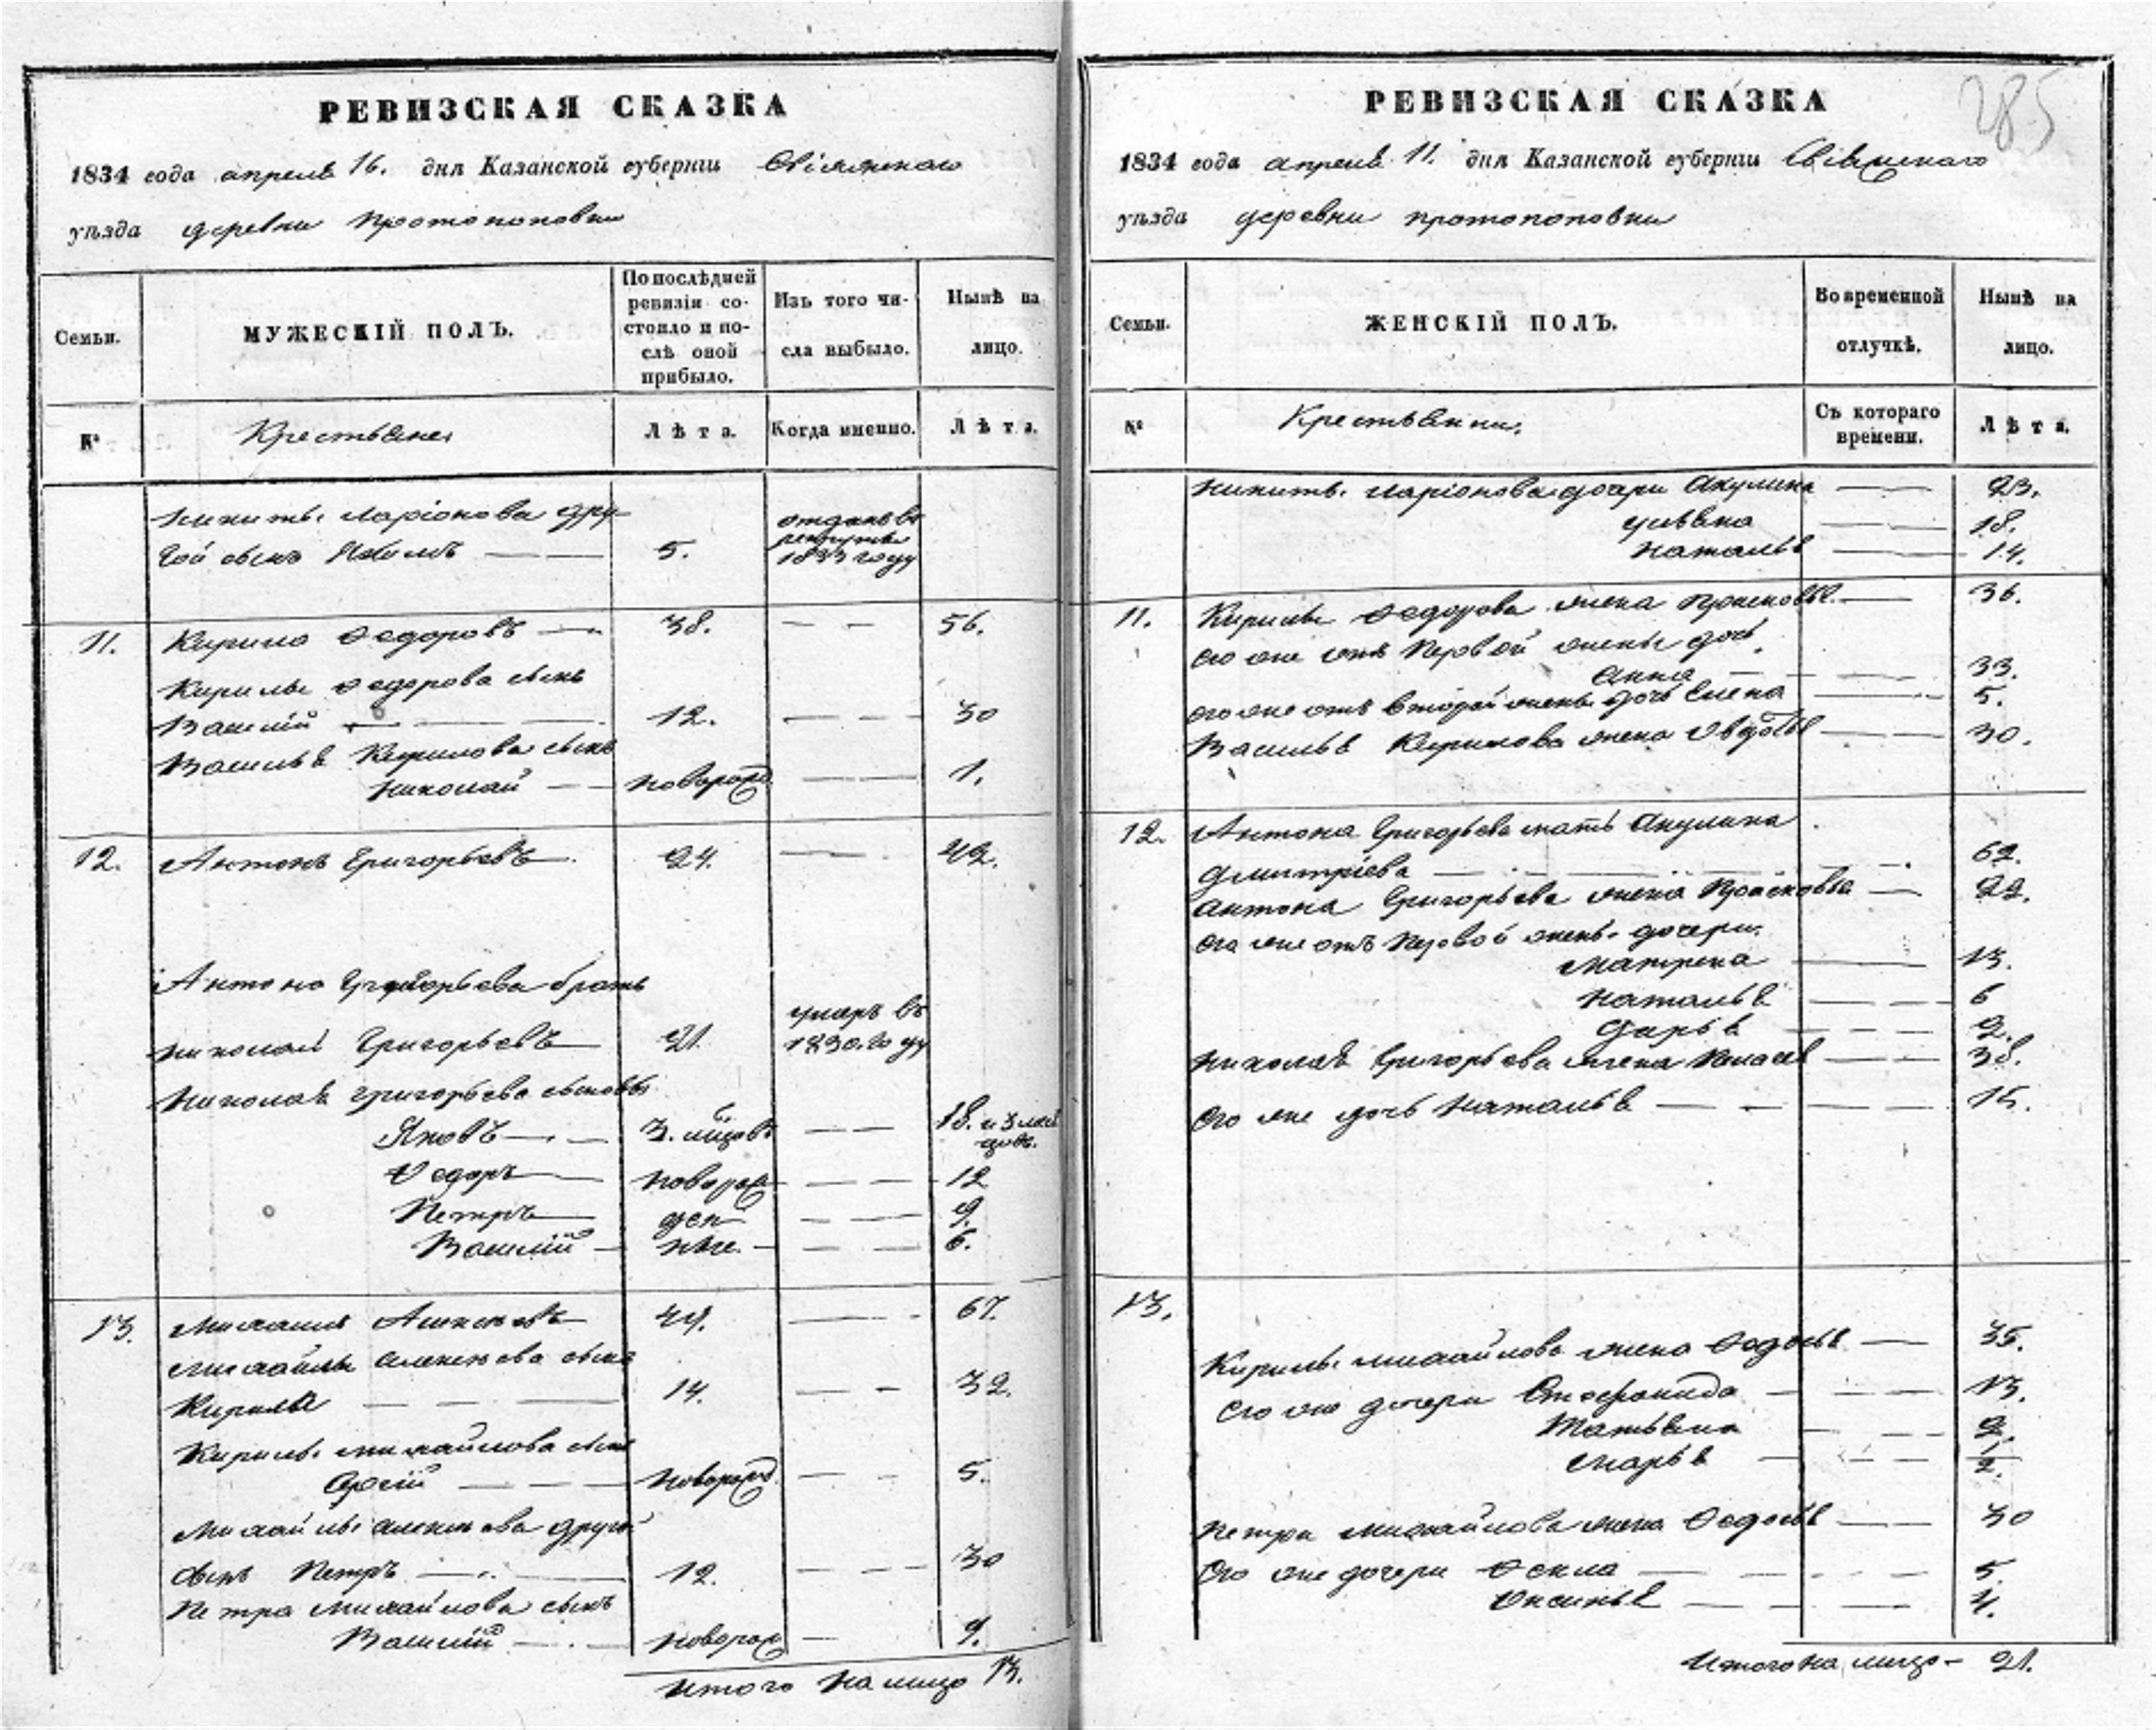 РЕВИЗСКАЯ СКАЗКА
1834 года апреля 16. дня Казанской губернiи Свiяжскаго
уѣзда деревни Протопоповки
Семьи.
МУЖЕСКIЙ ПОЛЪ.
По послѣдней
ревизiи со-
стояло и по-
слѣ оной
прибыло.
Изъ того чи-
сла выбыло.
Нынѣ на
лицо.
№
Крестьяне
Лѣта.
Когда именно.
Лѣта.
Никиты Ларiонова дру-
гой сынъ
5.
отданъ въ
рекруты
1833 году
11. Кирило Ѳедоровъ — 38. — — 56.
Кирилы Ѳедорова сынъ
Василiй — 12. — — 30
Василья Кирилова сынъ
Николай — новорожд — — 1.
12. Антонъ Григорьевъ — 24. — — 42.
Антона Григорьева братъ
Николай Григорьевъ — 21.
умеръ въ
1830. году
Николая Григорьева сыновья
Яковъ — 3. мцовъ — — 18. и 3 меся
цов.
Ѳедоръ — новорож — — 12
Петръ — ден — — 9.
Василiй — ные. — — 6.
13. Михаила Алексѣевъ — 49. — 67.
Михайлы Алексѣева сынъ
Кирила — 14. — — 32.
Кирилы Михайлова сынъ
Сергiй — новорожд. — — 5.
Михайлы Алексѣева другой
сынъ Петръ — 12. — — 30
Петра Михайлова сынъ
Василiй — новорож — 9.
Итого на лицо 13.
285
РЕВИЗСКАЯ СКАЗКА
1834 года апреля 11. дня Казанской губернiи Свiяжскаго
уѣзда деревни Протопоповки
Семьи.
ЖЕНСКIЙ ПОЛЪ.
Во временной
отлучкѣ.
Нынѣ на
лицо.
№
Крестьянки.
Съ котораго
времени.
Лѣта.
Никиты Ларiонова дочери Акулина — 23.
Ульяна — 18.
Наталья — 14.
11. Кирилы Ѳедорова жена Прасковья — 36.
Его же отъ первой жены дочь
Анна — 33.
Его же отъ второй жены дочь Елена — 5.
Василья Кирилова жена Овдотья — 30.
12. Антона Григорьева мать Акулина
Дмитрiева — 62.
Антона Григорьева жена Прасковья — 22.
Его же отъ первой жены дочери
Матрена — 13.
Наталья — 6
Дарья — 2.
Николая Григорьева жена Пелагея — 38.
Его же дочь Наталья — 15.
13.
Кирилы Михайлова жена Ѳедосья — 35.
Его же дочери Стефанида — 13.
Татьяна — 2.
Марья — 1/2.
Петра Михайлова жена Ѳедосья — 30
Его же дочери Ѳекла — 5
Оксинья — 4.
Итого на лицо — 21.